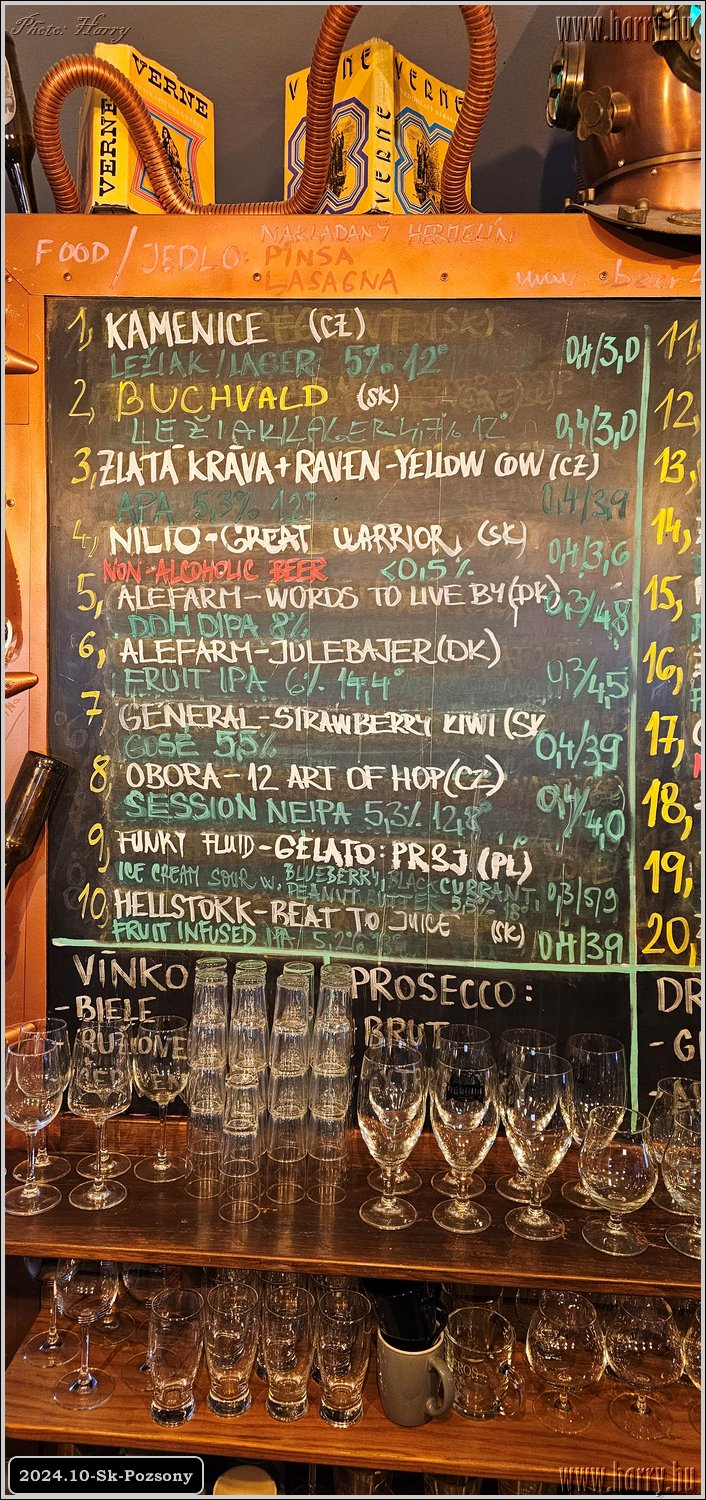 Photo: Harry
www.harry.hu
VERNE
VERNE
VERNE
VERNE
VERNE
FOOD / JEDLO:
NAKLADANÝ HERMELÍN
PINSA
LASAGNA
www.beer
1, KAMENICE (CZ)
LEŽIAK/LAGER 5% 12°
0,4/3,0
2, BUCHVALD (SK)
LEŽIAK/LAGER 4,7% 12°
0,4/3,0
3, ZLATÁ KRÁVA + RAVEN - YELLOW COW (CZ)
APA 5,3% 12°
0,4/3,9
4, NILIO - GREAT WARRIOR (SK)
NON-ALCOHOLIC BEER <0,5%
0,4/3,6
5, ALEFARM - WORDS TO LIVE BY (DK)
DDH DIPA 8%
0,3/4,8
6, ALEFARM - JULEBAJER (DK)
FRUIT IPA 6% 14,4°
0,3/4,5
7, GENERAL - STRAWBERRY KIWI (SK
GOSE 5,5%
0,4/3,9
8, OBORA - 12 ART OF HOP (CZ)
SESSION NEIPA 5,3% 12,8°
0,4/4,0
9, FUNKY FLUID - GELATO: PB&J (PL)
ICE CREAM SOUR W. BLUEBERRY, BLACKCURRANT,
PEANUT BUTTER 5,5% 18°
0,3/5,9
10, HELLSTORK - BEAT TO JUICE (SK)
FRUIT INFUSED IPA 5,2% 13°
0,4/3,9
11,
12,
13,
14,
15,
16,
17,
18,
19,
20,
VÍNKO
- BIELE
- RUŽOVÉ
PROSECCO:
- BRUT
DR
- G
2024.10-Sk-Pozsony
www.harry.hu